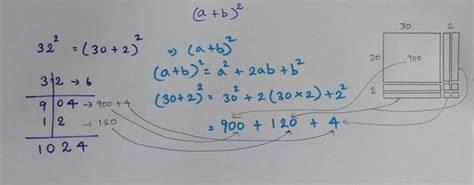 (a+b)²
32² = (30+2)² ⇒ (a+b)²
(a+b)² = a² + 2ab + b²
(30+2)² = 30² + 2(30×2) + 2²
= 900 + 120 + 4
3 2 → 6
9 04 → 900 + 4
1 2 → 120
1 0 2 4
30 2
30 900
2